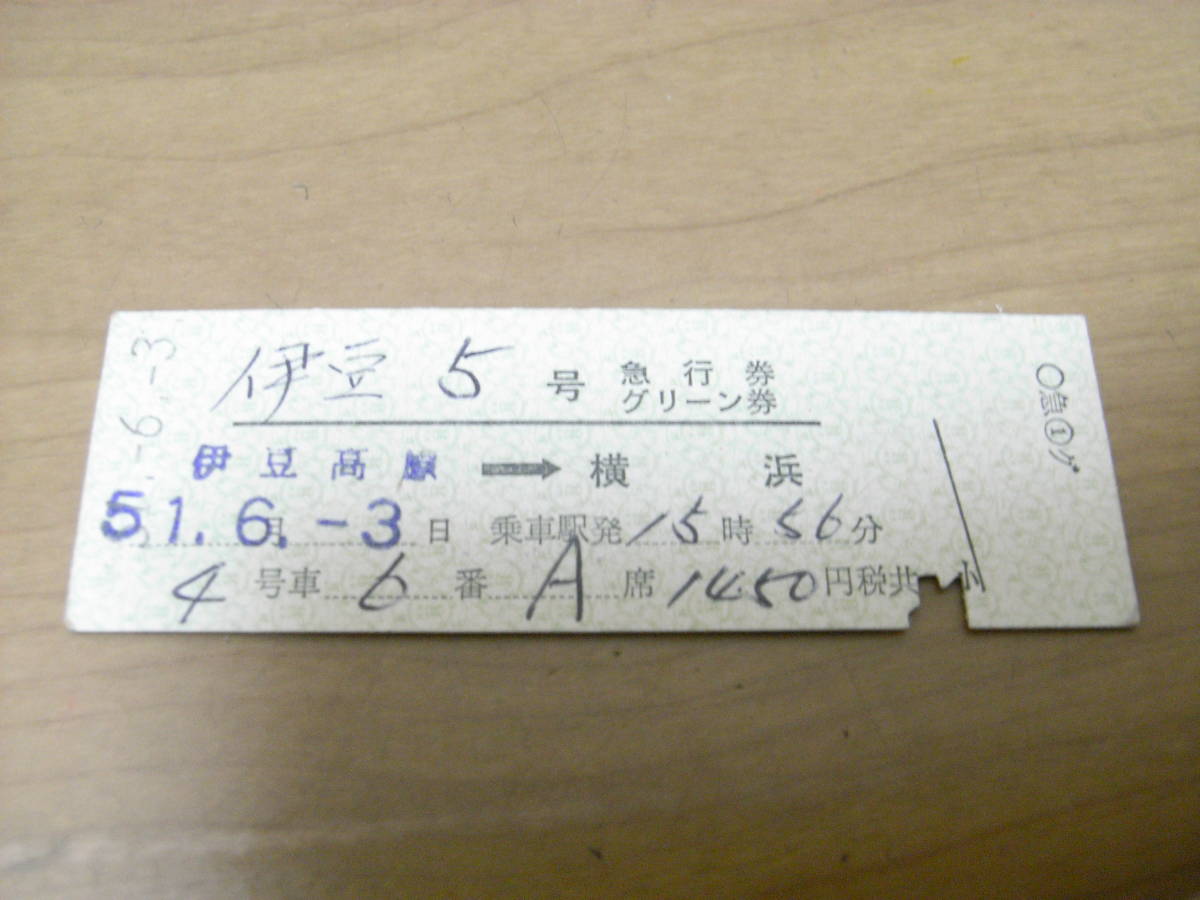 伊豆 5 号 急行券
グリーン券
伊豆高原 ➡ 横浜
51.6.-3 月 日 乗車駅発 15 時 56 分
4 号車 6 番 A 席 1450 円税共
小
-6.-3
○急①グ